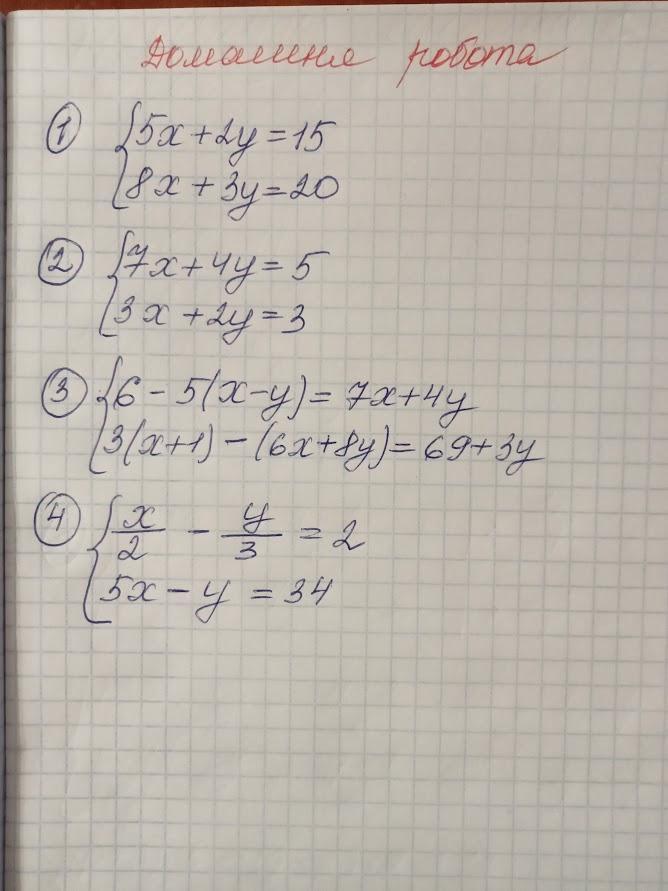 Домашня робота
1 5x+2y=15
8x+3y=20
2 7x+4y=5
3x+2y=3
3 6-5(x-y)=7x+4y
3(x+1)-(6x+8y)=69+3y
4 x/2 - y/3 = 2
5x-y=34